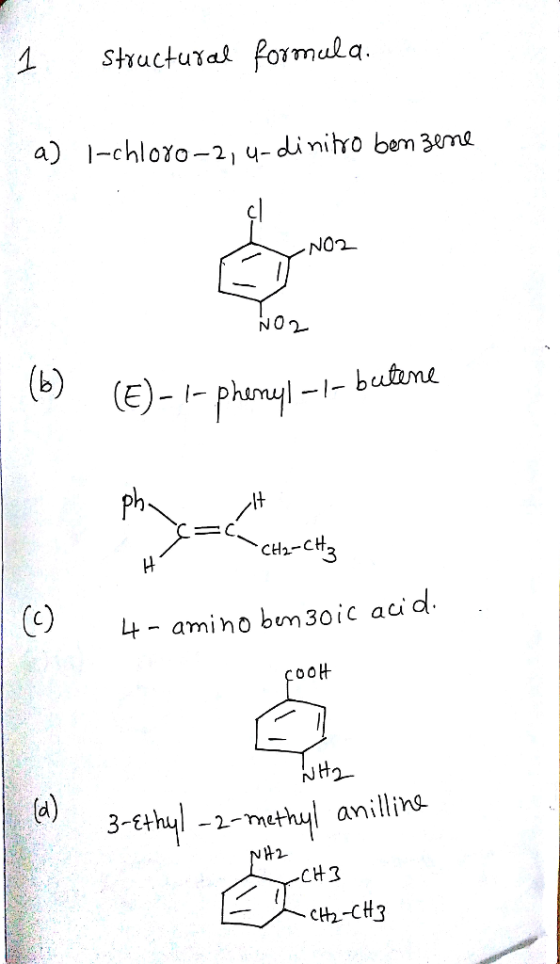 1 Structural formula.
a) 1-chloro-2,4-dinitro benzene
Cl
NO2
NO2
(b) (E)-1-phenyl-1-butene
Ph H
C=C
H CH2-CH3
(c) 4-amino benzoic acid.
COOH
NH2
(d) 3-Ethyl-2-methyl anilline
NH2
CH3
CH2-CH3